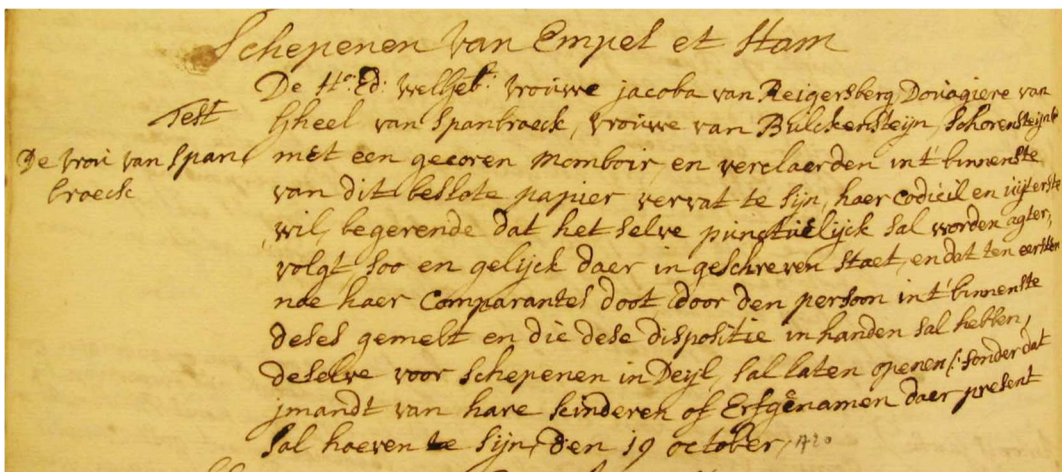 Schepenen van Empel et Ham
De Ho: Ed: welgeb: vrouwe jacoba van Reigersberg Douagiere van
Test
Gheel van Spanbroeck, vrouwe van Bulckensteijn, Schorensteijn
De vrou van Span
broeck
met een gecoren momboir, en verclaerden int' binnenste
van dit beslote papier vervat te sijn, haer codicil en uijterste
wil, begerende dat het selve punctuelijck sal worden agter,
volgt, soo en gelijck daer in geschreven staet, en dat ten eersten
nae haer Comparantes doot door den persoon int' binnenste
deses gemelt en die dese dispositie in handen sal hebben,
deselve voor schepenen in Deijl, sal laten openen /: sonder dat
jmandt van hare kinderen of Erfgenamen daer present
sal hoeven te sijn, den 19 october, 1720